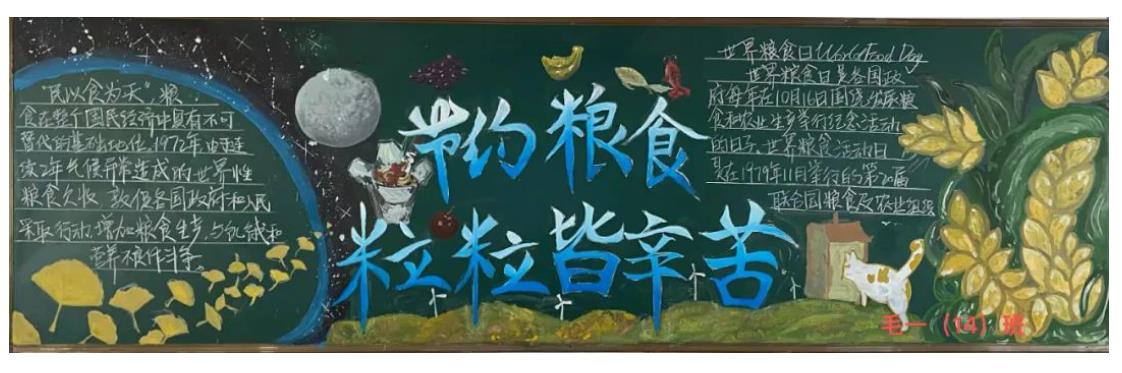 "民以食为天",粮
食在整个国民经济中具有不可
替代的基础地位。1972年,由于连
续2年气候异常造成的世界性
粮食欠收,敦促各国政府和人民
采取行动,增加粮食生产,与饥饿和
营养不良作斗争。
节约粮食
粒粒皆辛苦
世界粮食日World Food Day
世界粮食日是各国政
府每年在10月16日围绕发展粮
食和农业生产举行纪念活动
的日子。世界粮食活动日
是在1979年11月举行的第20届
联合国粮食及农业组织
毛一(14)班